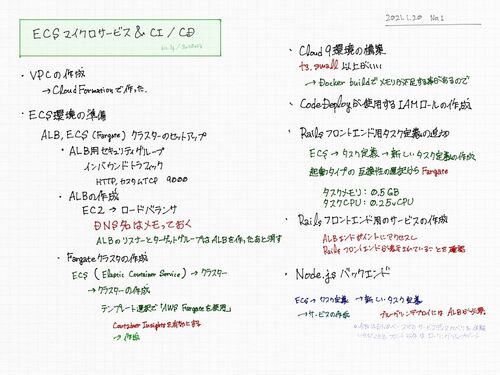 ECS マイクロサービス & CI / CD
・VPCの作成
→ Cloud Formation で作った.
・ECS環境の準備
ALB, ECS (Fargate) クラスターのセットアップ
・ALB用セキュリティグループ
インバウンドトラフィック
HTTP, カスタムTCP 9000
・ALBの作成
EC2 → ロードバランサ
DNS名はメモっておく
ALBのリスナーとターゲットグループはALBを作ったあと消す
・Fargateクラスタの作成
ECS (Elastic Container Service) → クラスター
→ クラスターの作成
テンプレート選択で「AWS Fargateを使用」
Container Insightsを有効にする
→ 作成
2021.1.20 No.1
・Cloud 9環境の構築
t3.small 以上がいい
→ Docker buildでメモリが不足する事があるので
・CodeDeployが使用するIAMロールの作成
・Railsフロントエンド用タスク定義の追加
ECS → タスク定義 → 新しいタスク定義の作成
起動タイプの互換性の選択から Fargate
タスクメモリ : 0.5GB
タスクCPU : 0.25vCPU
・Railsフロントエンド用のサービスの作成
ALBエンドポイントにアクセスし
Railsフロントエンドが表示されていることを確認
・Node.js バックエンド
ECS → タスク定義 → 新しいタスク定義
→ サービスの作成 ブルー/グリーンデプロイには ALBが必要